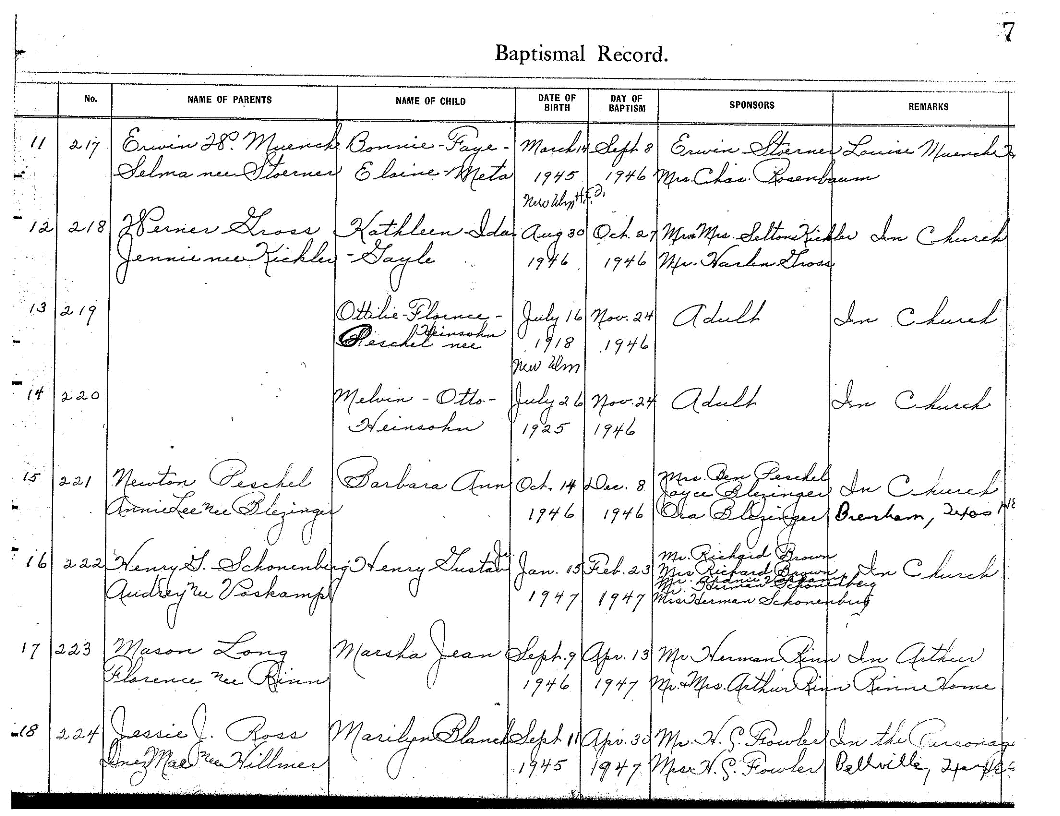 7
Baptismal Record.
No. NAME OF PARENTS NAME OF CHILD DATE OF BIRTH DAY OF BAPTISM SPONSORS REMARKS
11 217 Erwin Muench Bonnie-Faye- March 14 Sept 8 Erwin Stoerner Louise Muench
Selma nee Stoerner Elaine-Meta 1945 1946 Mrs Chas. Rosenbaum
New Ulm
12 218 Werner Gross Kathleen-Ida Aug 30 Oct. 27 Mr Mrs. Seltons Kickler In Church
Jennie nee Kickler -Gayle 1946 1946 Mr. Harlen Gross
13 219 Ottilie-Florence- July 16 Nov. 24 Adult In Church
Heinsohn
Peschel nee 1918 1946
New Ulm
14 220 Melvin-Otto- July 26 Nov. 24 Adult In Church
Heinsohn 1925 1946
15 221 Newton Peschel Barbara Ann Oct. 14 Dec. 8 Mrs. Ben Peschel In Church
Joyce Blezinger
Annie Lee nee Blezinger 1946 1946 Ora Blezinger Brenham, Texas
16 222 Henry G. Schonenberg Henry Gustav Jr Jan. 15 Feb. 23 Mr. Richard Brown In Church
Mrs Richard Brown
Mr. Herman Schonenberg
Audrey nee Voskamp 1947 1947 Mrs Herman Schonenberg
17 223 Mason Long Marsha Jean Sept. 9 Apr. 13 Mr Herman Rinn In Arthur
Florence nee Rinn 1946 1947 Mr. & Mrs. Arthur Rinn Rinn Home
18 224 Jessie J. Ross Marilyn Blanch Sept 11 Apr. 30 Mr. H. G. Fowler In the Parsonage
Inez Mae nee Hillmer 1945 1947 Mrs H. G. Fowler Bellville,